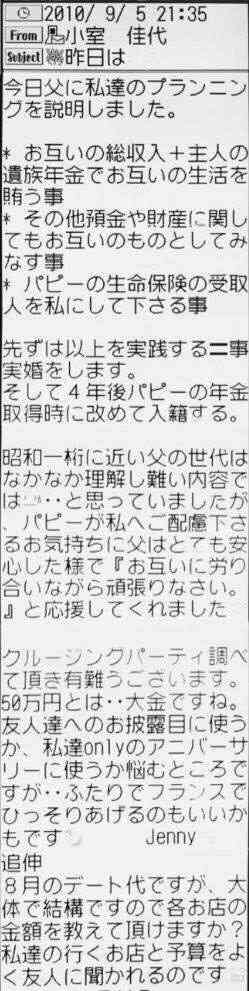 2010/ 9/ 5 21:35
From 小室 佳代
Subject 昨日は
今日父に私達のプランニン
グを説明しました。
* お互いの総収入+主人の
遺族年金でお互いの生活を
賄う事
* その他預金や財産に関し
てもお互いのものとしてみ
なす事
* パピーの生命保険の受取
人を私にして下さる事
先ずは以上を実践する=事
実婚をします。
そして4年後パピーの年金
取得時に改めて入籍する。
昭和一桁に近い父の世代は
なかなか理解し難い内容で
は‥と思っていましたが
、パピーが私へご配慮下さ
るお気持ちに父はとても安
心した様で『お互いに労り
合いながら頑張りなさい。
』と応援してくれました
クルージングパーティ調べ
て頂き有難うございます。
50万円とは‥大金ですね。
友人達へのお披露目に使う
か、私達onlyのアニバーサ
リーに使うか悩むところで
すが‥ふたりでフランスで
ひっそりあげるのもいいか
もです Jenny
追伸
8月のデート代ですが、大
体で結構ですので各お店の
金額を教えて頂けますか?
私達の行くお店と予算をよ
く友人に聞かれるのです